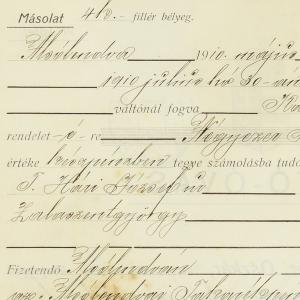 Másolat 4 f. - fillér bélyeg.
Alsólendva 1910. május
1910 julius hó 30-án
váltónál fogva
rendelet-é-re Négyezer
értéke készpénzben tegye számolásba tudo
T. Hári József úr
Zalaszentgyörgy
Fizetendő Alsólendván
Alsólendvai Takarékp